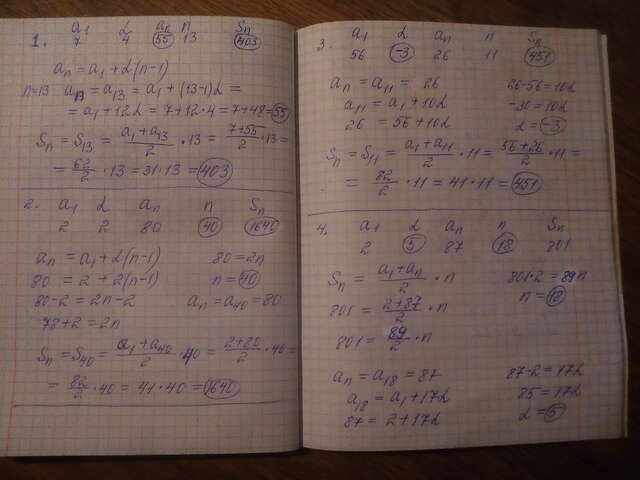 1. a₁ d aₙ n Sₙ
7 7 55 13 403
aₙ = a₁ + d(n-1)
n=13 a₁₃ = a₁₃ = a₁ + (13-1)d =
= a₁ + 12d = 7 + 12·4 = 7 + 48 = 55
Sₙ = S₁₃ = (a₁ + a₁₃)/2 · 13 = (7+55)/2 · 13 =
= 62/2 · 13 = 31·13 = 403
2. a₁ d aₙ n Sₙ
2 2 80 40 1640
aₙ = a₁ + d(n-1) 80 = 2n
80 = 2 + 2(n-1) n = 40
80-2 = 2n-2 aₙ = a₄₀ = 80
78+2 = 2n
Sₙ = S₄₀ = (a₁ + a₄₀)/2 · 40 = (2+80)/2 · 40 =
= 82/2 · 40 = 41·40 = 1640
3. a₁ d aₙ n Sₙ
56 -3 26 11 451
aₙ = a₁₁ = 26 26-56 = 10d
a₁₁ = a₁ + 10d -30 = 10d
26 = 56 + 10d d = -3
Sₙ = S₁₁ = (a₁ + a₁₁)/2 · 11 = (56+26)/2 · 11 =
= 82/2 · 11 = 41·11 = 451
4. a₁ d aₙ n Sₙ
2 5 87 18 801
Sₙ = (a₁ + aₙ)/2 · n 801·2 = 89n
801 = (2+87)/2 · n n = 18
801 = 89/2 · n
aₙ = a₁₈ = 87 87-2 = 17d
a₁₈ = a₁ + 17d 85 = 17d
87 = 2 + 17d d = 5